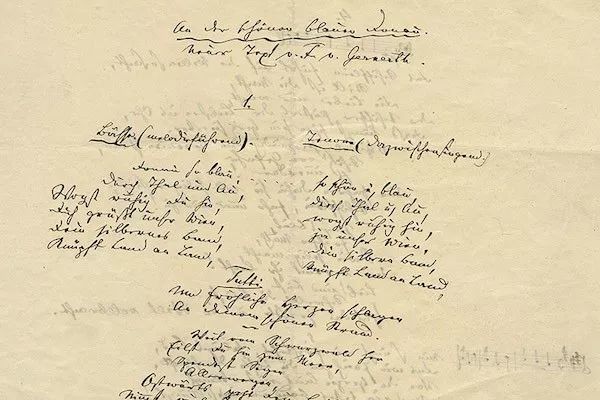 An der schönen blauen Donau.
Neuer Text v. F. v. Gernerth.
1.
Bässe (melodieführend).
Donau so blau,
Durch Thal und Au,
Wogst ruhig Du hin,
Dich grüßt unser Wien,
Dein silbernes Band,
Knüpft Land an Land,
Tenore (dazwischensingend.)
so schön u. blau,
durch Thal u. Au,
wogst ruhig hin,
ja unser Wien,
Dein silbern Band,
Knüpft Land an Land,
Tutti
Und fröhliche Herzen schlagen
An Deinem schönen Strand.
Weit vom Schwarzwald her
Eilst Du hin zum Meer,
Spendest Segen
Allerwegen,
Ostwärts geht Dein Lauf,
Nimmst